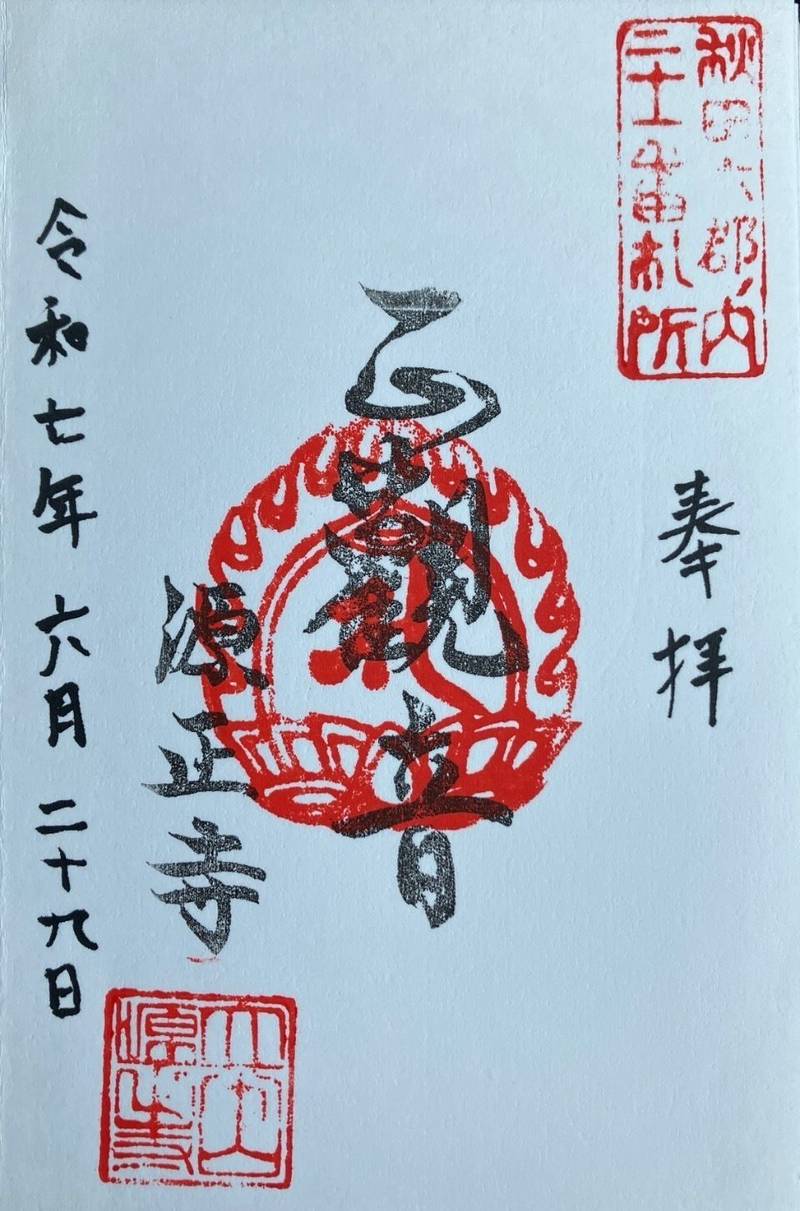 秋田六郡ノ内
番札所
奉拝
正観音
源正寺
令和七年 六月 二十九日
源正寺